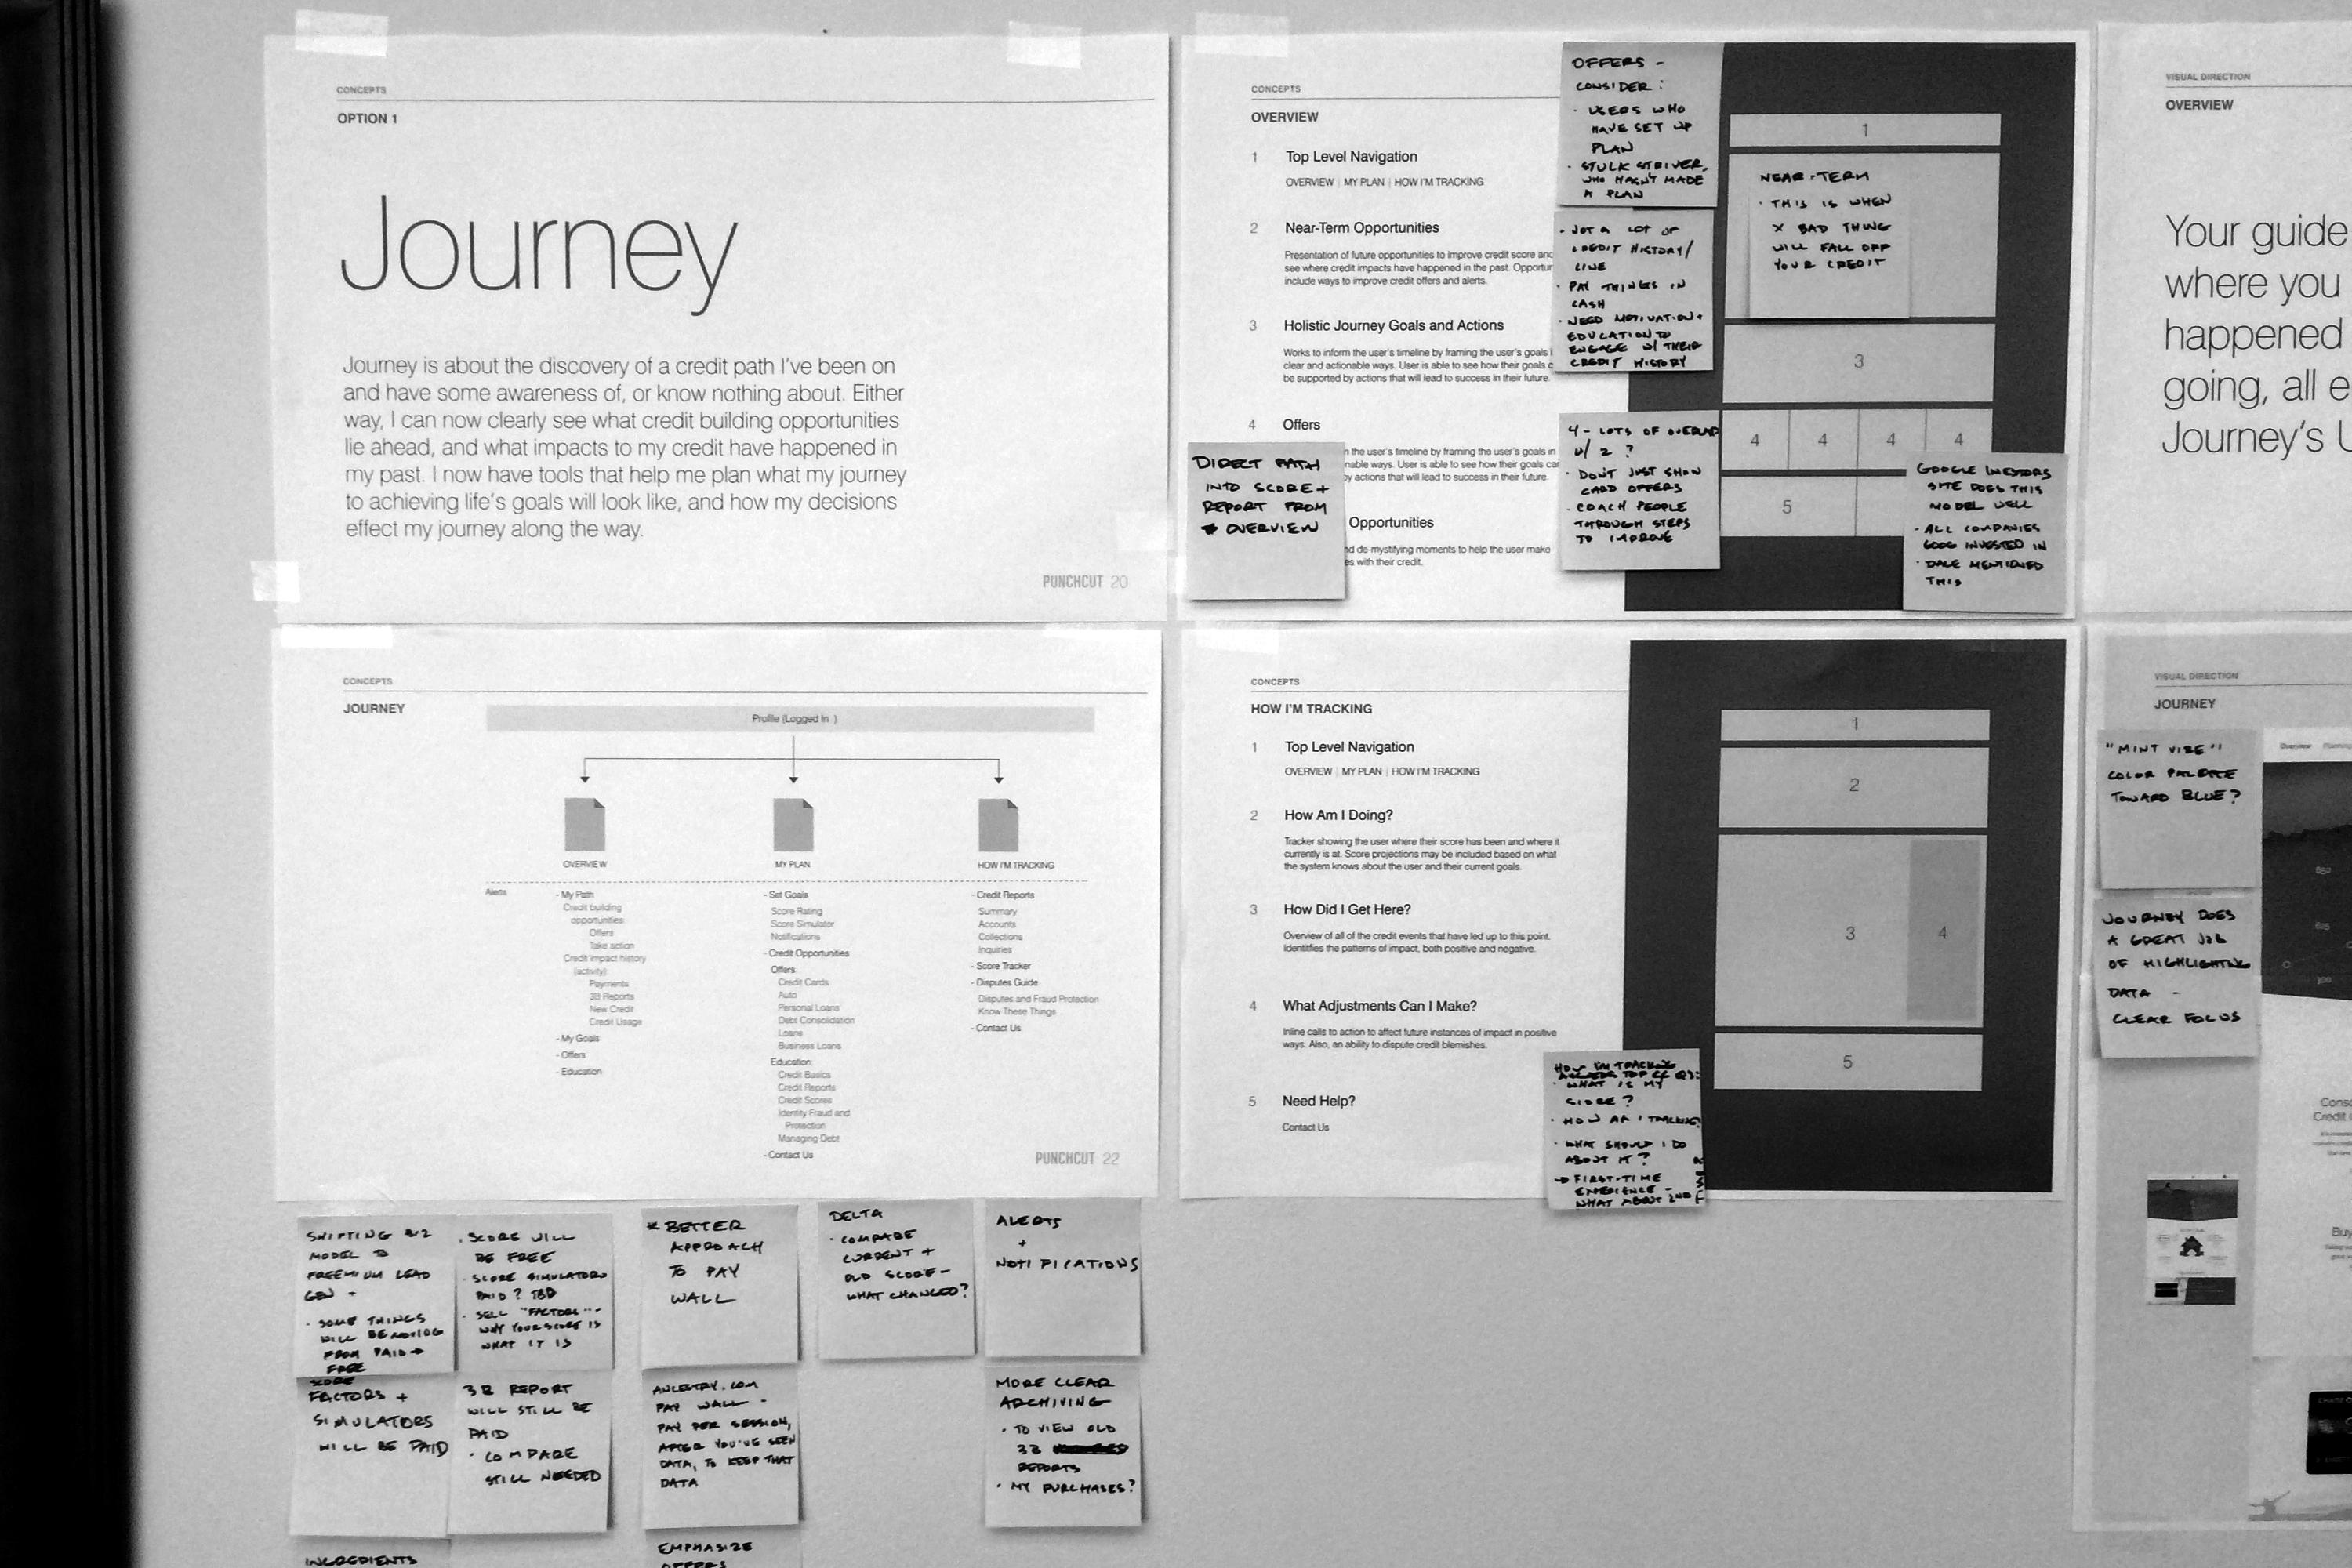 CONCEPTS
OPTION 1
Journey
Journey is about the discovery of a credit path I've been on
and have some awareness of, or know nothing about. Either
way, I can now clearly see what credit building opportunities
lie ahead, and what impacts to my credit have happened in
my past. I now have tools that help me plan what my journey
to achieving life's goals will look like, and how my decisions
effect my journey along the way.
PUNCHCUT 20
CONCEPTS
OVERVIEW
1 Top Level Navigation
OVERVIEW | MY PLAN | HOW I'M TRACKING
2 Near-Term Opportunities
Presentation of future opportunities to improve credit score and
see where credit impacts have happened in the past. Opportun
include ways to improve credit offers and alerts.
3 Holistic Journey Goals and Actions
Works to inform the user's timeline by framing the user's goals i
clear and actionable ways. User is able to see how their goals c
be supported by actions that will lead to success in their future.
4 Offers
the user's timeline by framing the user's goals in
nable ways. User is able to see how their goals can
y actions that will lead to success in their future.
Opportunities
nd de-mystifying moments to help the user make
es with their credit.
DIRECT PATH
INTO SCORE +
REPORT FROM
OVERVIEW
OFFERS -
CONSIDER:
· USERS WHO
HAVE SET UP
PLAN
· STUCK STRIVER,
WHO HASN'T MADE
A PLAN
· NOT A LOT OF
CREDIT HISTORY/
LINE
· PAY THINGS IN
CASH
· NEED MOTIVATION +
EDUCATION TO
ENGAGE W/ THEIR
CREDIT HISTORY
4 - LOTS OF OVERLAP
W/ 2 ?
· DON'T JUST SHOW
CARD OFFERS
· COACH PEOPLE
THROUGH STEPS
TO IMPROVE
1
NEAR-TERM
· THIS IS WHEN
X BAD THING
WILL FALL OFF
YOUR CREDIT
3
4 4 4 4
5
GOOGLE INVESTORS
SITE DOES THIS
MODEL WELL
· ALL COMPANIES
GOOG INVESTED IN
· DALE MENTIONED
THIS
VISUAL DIRECTION
OVERVIEW
Your guide
where you
happened
going, all e
Journey's U
CONCEPTS
JOURNEY
Profile (Logged In )
OVERVIEW
MY PLAN
HOW I'M TRACKING
Alerts
- My Path
Credit building
opportunities
Offers
Take action
Credit impact history
(activity)
Payments
3B Reports
New Credit
Credit Usage
- My Goals
- Offers
- Education
- Set Goals
Score Rating
Score Simulator
Notifications
- Credit Opportunities
Offers
Credit Cards
Auto
Personal Loans
Debt Consolidation
Loans
Business Loans
Education
Credit Basics
Credit Reports
Credit Scores
Identity Fraud and
Protection
Managing Debt
- Contact Us
- Credit Reports
Summary
Accounts
Collections
Inquiries
- Score Tracker
- Disputes Guide
Disputes and Fraud Protection
Know These Things
- Contact Us
PUNCHCUT 22
CONCEPTS
HOW I'M TRACKING
1 Top Level Navigation
OVERVIEW | MY PLAN | HOW I'M TRACKING
2 How Am I Doing?
Tracker showing the user where their score has been and where it
currently is at. Score projections may be included based on what
the system knows about the user and their current goals.
3 How Did I Get Here?
Overview of all of the credit events that have led up to this point.
Identifies the patterns of impact, both positive and negative.
4 What Adjustments Can I Make?
Inline calls to action to affect future instances of impact in positive
ways. Also, an ability to dispute credit blemishes.
5 Need Help?
Contact Us
HOW I'M TRACKING
TOP
· WHAT IS MY
SCORE?
· HOW AM I TRACKING?
· WHAT SHOULD I DO
ABOUT IT?
→ FIRST-TIME
EXPERIENCE -
WHAT ABOUT 2ND
1
2
3
4
5
VISUAL DIRECTION
JOURNEY
"MINT VIBE"!
COLOR PALETTE
TOWARD BLUE?
JOURNEY DOES
A GREAT JOB
OF HIGHLIGHTING
DATA -
CLEAR FOCUS
Overview
652
625
300
Credit
Buy
SHIFTING BIZ
MODEL TO
FREEMIUM LEAD
GEN -
· SOME THINGS
WILL BE MOVING
FROM PAID →
FREE
· SCORE WILL
BE FREE
· SCORE SIMULATORS
PAID? TBD
· SELL "FACTORS" -
WHY YOUR SCORE IS
WHAT IT IS
* BETTER
APPROACH
TO PAY
WALL
DELTA
· COMPARE
CURRENT +
OLD SCORE -
WHAT CHANGED?
ALERTS
+
NOTIFICATIONS
SCORE
FACTORS +
SIMULATORS
WILL BE PAID
3B REPORT
WILL STILL BE
PAID
· COMPARE
STILL NEEDED
ANCESTRY.COM
PAY WALL -
PAY PER SESSION,
AFTER YOU'VE SEEN
DATA, TO KEEP THAT
DATA
MORE CLEAR
ARCHIVING
· TO VIEW OLD
3B
REPORTS
· MY PURCHASES?
INGREDIENTS
EMPHASIZE
OFFERS